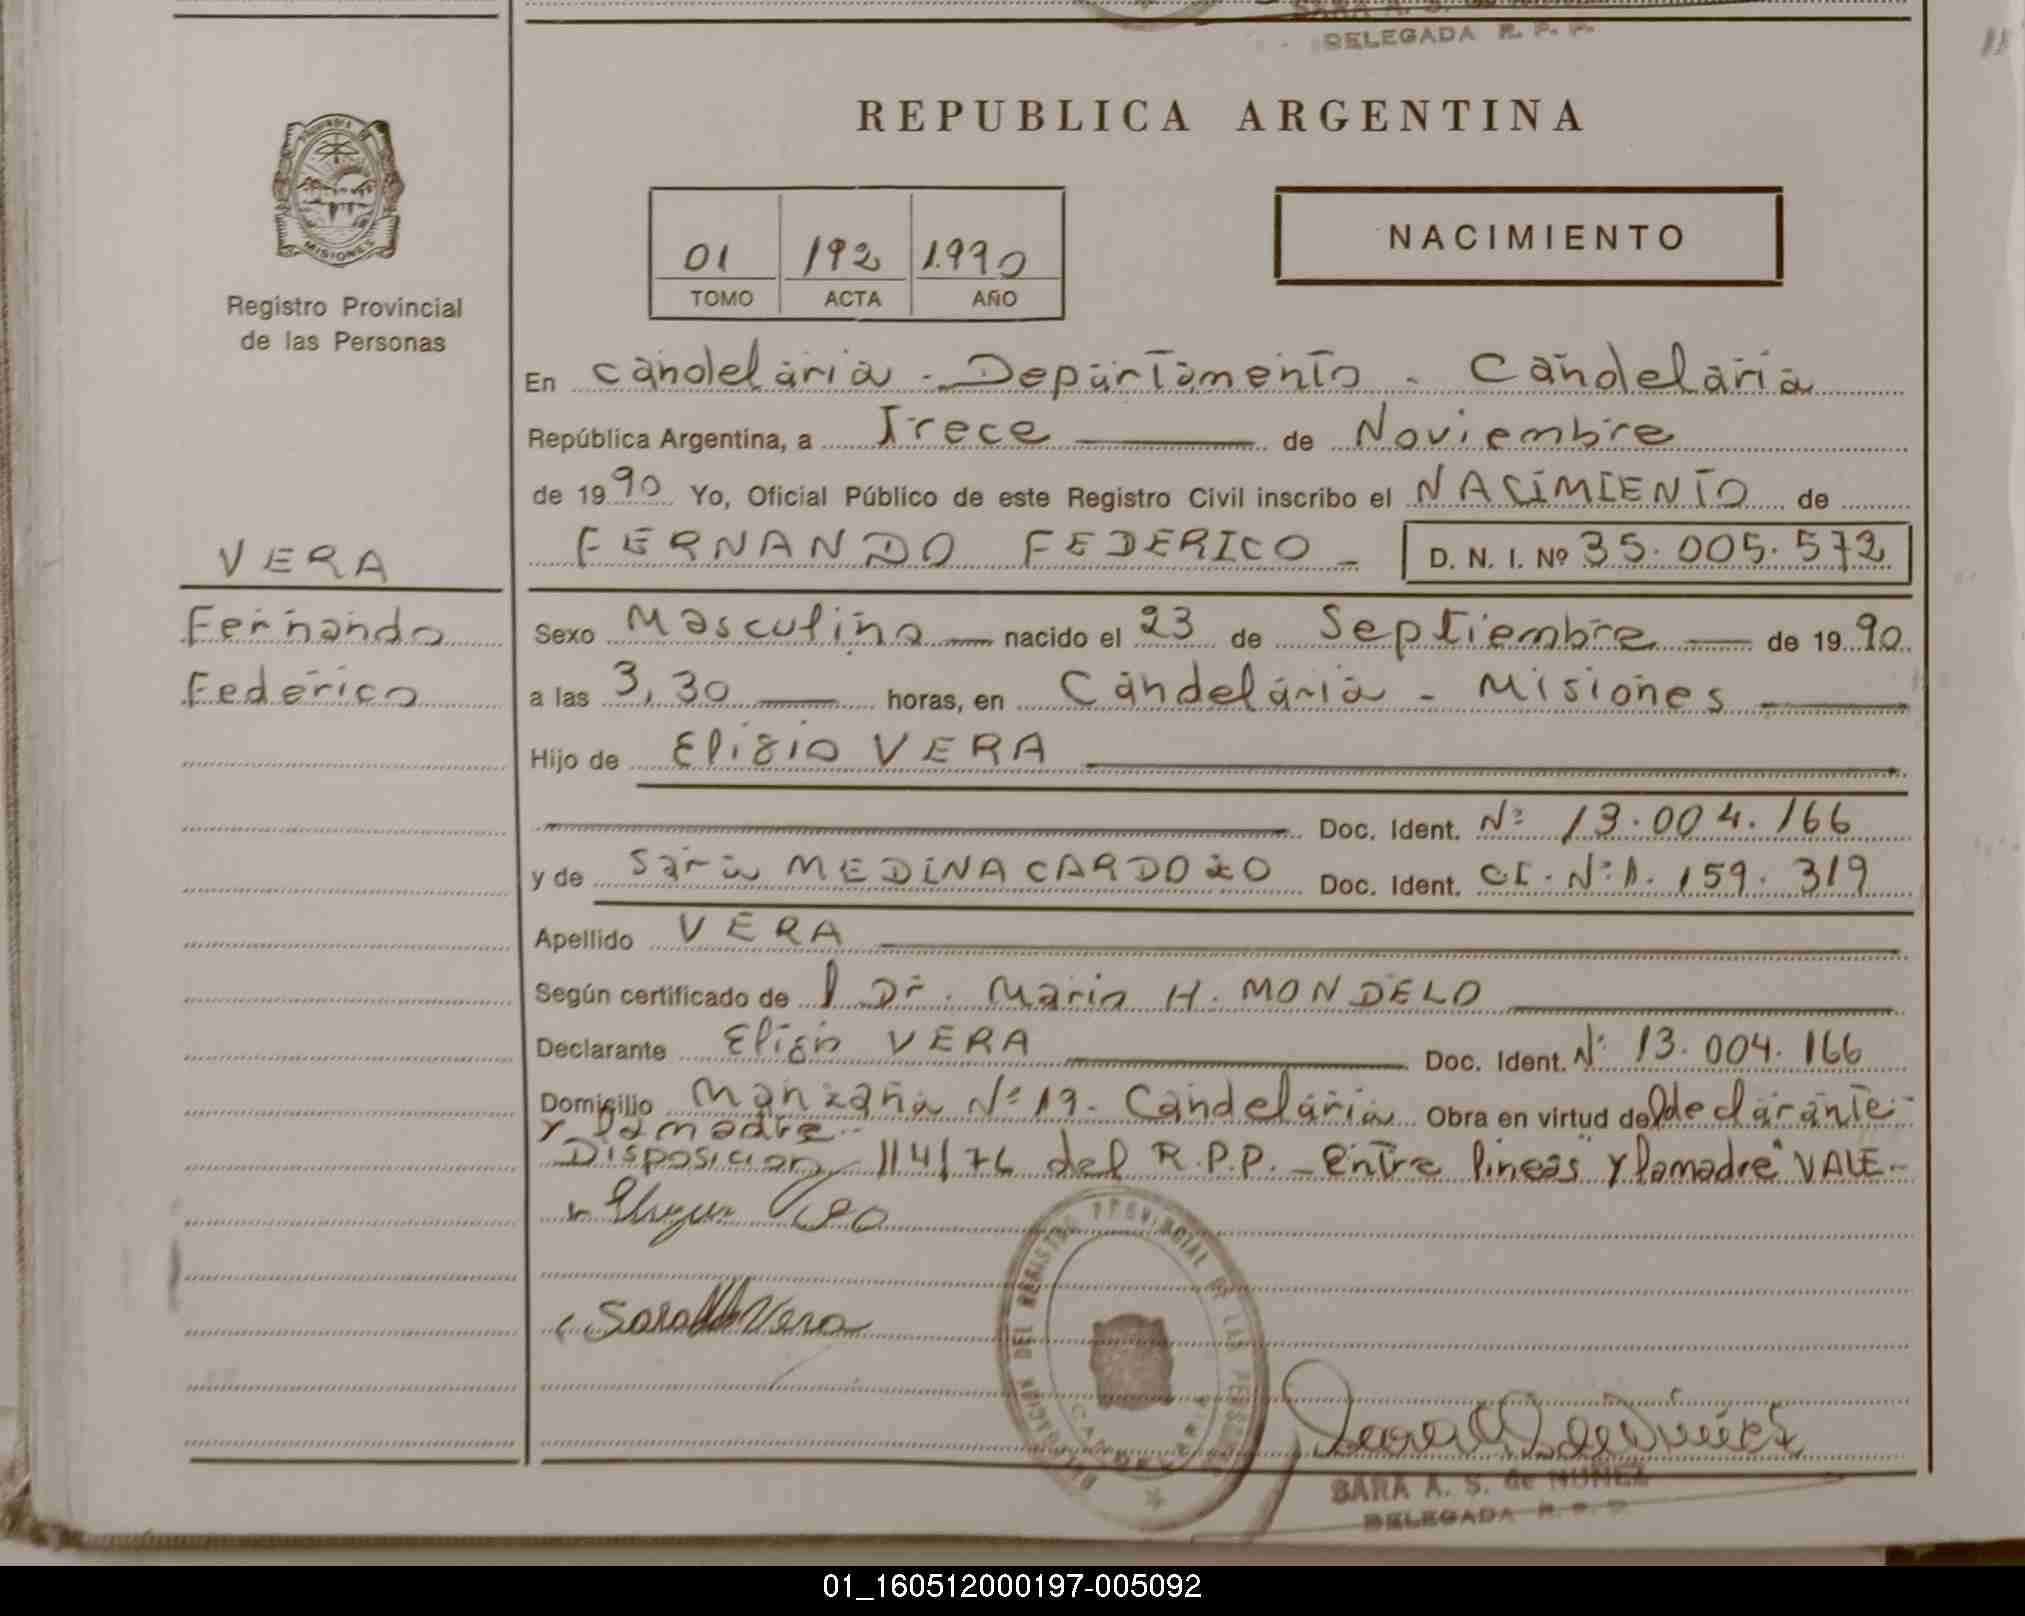 DELEGADA R. P. P.
REPUBLICA ARGENTINA
PROVINCIA
MISIONES
Registro Provincial
de las Personas
01 192 1.990
TOMO ACTA AÑO
NACIMIENTO
En Candelaria - Departamento - Candelaria
República Argentina, a Trece de Noviembre
de 1990 Yo, Oficial Público de este Registro Civil inscribo el NACIMIENTO de
VERA
FERNANDO FEDERICO - D. N. I. Nº 35.005.572
Fernando
Federico
Sexo Masculino nacido el 23 de Septiembre de 1990
a las 3,30 horas, en Candelaria - Misiones
Hijo de Eligio VERA
Doc. Ident. Nº 13.004.166
y de Sara MEDINA CARDOZO Doc. Ident. CI. Nº 1.159.319
Apellido VERA
Según certificado de l Dr. Mario H. MONDELO
Declarante Eligio VERA Doc. Ident. Nº 13.004.166
Domicilio Manzana Nº 19 - Candelaria Obra en virtud del declarante
y la madre
Disposicion 114/76 del R.P.P. - Entre lineas "y la madre" VALE -
Sara M Vera
DELEGACION DEL REGISTRO PROVINCIAL DE LAS PERSONAS
SARA A. S. de NUÑEZ
DELEGADA R. P. P.
01_160512000197-005092